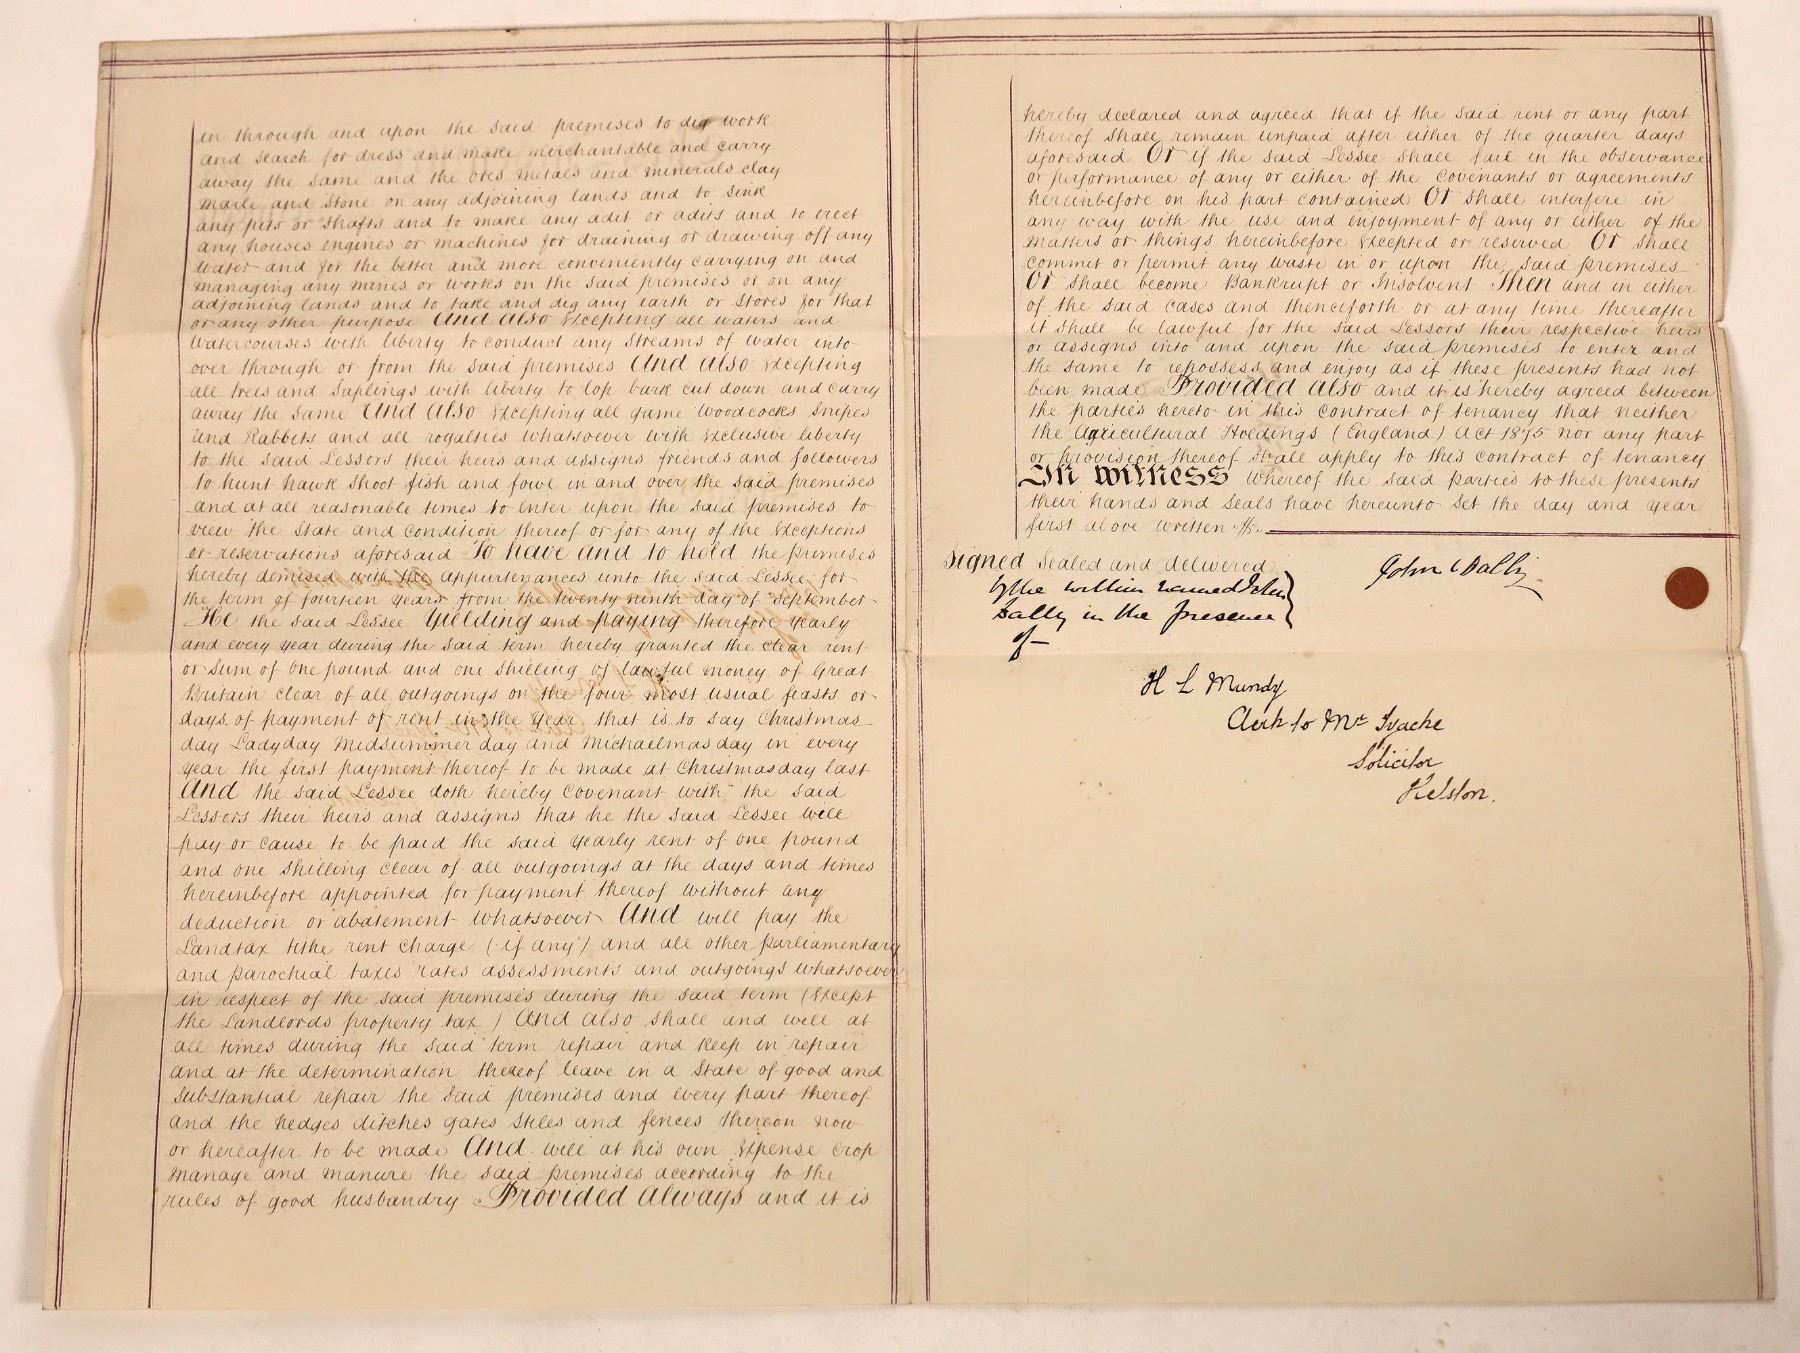 in through and upon the said premises to dig work
and search for dress and make merchantable and carry
away the same and the ores metals and minerals clay
marle and stone on any adjoining lands and to sink
any pits or shafts and to make any adit or adits and to erect
any houses engines or machines for draining or drawing off any
water and for the better and more conveniently carrying on and
managing any mines or works on the said premises or on any
adjoining lands and to take and dig any earth or stores for that
or any other purpose And also Excepting all waters and
watercourses with liberty to conduct any streams of water into
over through or from the said premises And also Excepting
all trees and Saplings with liberty to lop bark cut down and carry
away the same And also Excepting all game Woodcocks Snipes
and Rabbits and all royalties whatsoever with exclusive liberty
to the said Lessors their heirs and assigns friends and followers
to hunt hawk shoot fish and fowl in and over the said premises
and at all reasonable times to enter upon the said premises to
view the state and condition thereof or for any of the exceptions
or reservations aforesaid To have and to hold the premises
hereby demised with the appurtenances unto the said Lessee for
the term of fourteen years from the twenty ninth day of September
He the said Lessee Yielding and paying therefore yearly
and every year during the said term hereby granted the clear rent
or sum of one pound and one shilling of lawful money of Great
Britain clear of all outgoings on the four most usual feasts or
days of payment of rent in the year that is to say Christmas
day Ladyday Midsummer day and Michaelmas day in every
year the first payment thereof to be made at Christmasday last
And the said Lessee doth hereby Covenant with the said
Lessors their heirs and assigns that he the said Lessee will
pay or cause to be paid the said yearly rent of one pound
and one shilling clear of all outgoings at the days and times
hereinbefore appointed for payment thereof without any
deduction or abatement whatsoever And will pay the
Landtax tithe rent charge (if any) and all other parliamentary
and parochial taxes rates assessments and outgoings whatsoever
in respect of the said premises during the said term (Except
the Landlords property tax) And also shall and will at
all times during the said term repair and keep in repair
and at the determination thereof leave in a state of good and
substantial repair the said premises and every part thereof
and the hedges ditches gates stiles and fences thereon now
or hereafter to be made And will at his own expense crop
manage and manure the said premises according to the
rules of good husbandry Provided always and it is
hereby declared and agreed that if the said rent or any part
thereof shall remain unpaid after either of the quarter days
aforesaid Or if the said Lessee shall fail in the observance
or performance of any or either of the covenants or agreements
hereinbefore on his part contained Or shall interfere in
any way with the use and enjoyment of any or either of the
matters or things hereinbefore excepted or reserved Or shall
commit or permit any waste in or upon the said premises
Or shall become Bankrupt or Insolvent Then and in either
of the said cases and thenceforth or at any time thereafter
it shall be lawful for the said Lessors their respective heirs
or assigns into and upon the said premises to enter and
the same to repossess and enjoy as if these presents had not
been made Provided also and it is hereby agreed between
the parties hereto in this contract of tenancy that neither
the Agricultural Holdings (England) Act 1875 nor any part
or provision thereof shall apply to this contract of tenancy
In Witness whereof the said parties to these presents
their hands and seals have hereunto set the day and year
first above written
Signed Sealed and delivered
by the within named John
Dally in the presence
of
John Dally
H L Mundy
Clerk to Mr
Solicitor
Helston.